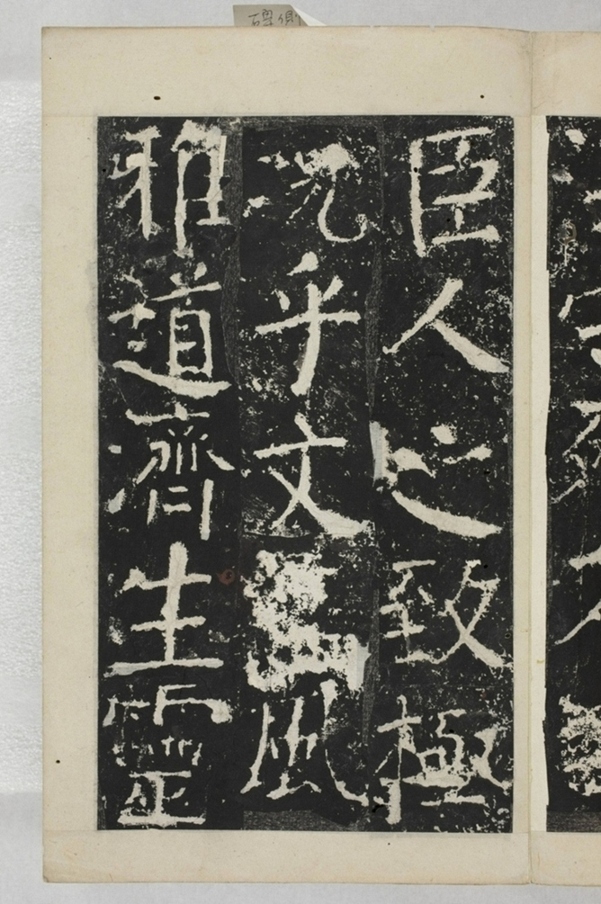 臣人之致極
況乎文風
雅道濟生靈